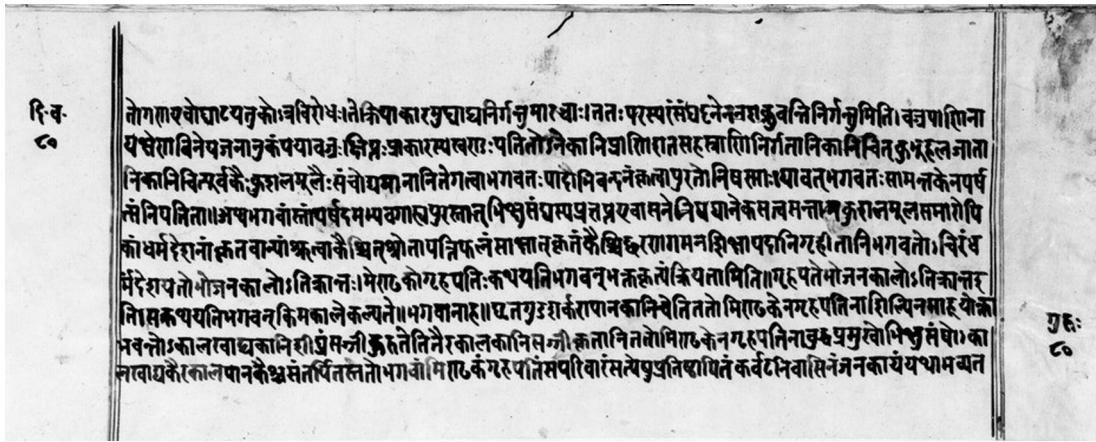 तोगणएवोद्घाटयतुकोऽत्रविरोधः।तेक्रियाकारमुद्घाट्यनिर्गन्तुमारब्धाः।ततःपरस्परंसंघट्टनेननशक्नुवन्तिनिर्गन्तुमिति।वज्रपाणिना
दि॰व॰
८०
यक्षेणविनेयजनानुकंपयावज्रःक्षिप्तःप्राकारस्यखण्डःपतितोऽनेकानिप्राणिशतसहस्राणिनिर्गतानिकानिचित्कुतूहलजाता
निकानिचित्पूर्वकैःकुशलमूलैःसंचोद्यमानानितेगत्वाभगवतःपादाभिवन्दनंकृत्वापुरतोनिषण्णाःयावत्भगवतःसामन्तकेनपर्ष
त्संनिपतिता॥अथभगवांस्तांपर्षदमभ्यवगाह्यपुरस्तात्भिक्षुसंघस्यप्रज्ञप्तएवासनेनिषद्यानेकसत्वसन्तानकुशलमूलसमारोपि
कांधर्मदेशनांकृतवान्यांश्रुत्वाकैश्चित्श्रोतापत्तिफलंसाक्षात्कृतंकैश्चिच्छरणगमनशिक्षापदानिगृहीतानिभगवतोऽचिरंध
र्मदेशयतोभोजनकालोऽतिक्रान्तः।मेण्ढकोगृहपतिःकथयतिभगवन्भक्तकृत्यंक्रियतामिति॥गृहपतेभोजनकालोऽतिक्रान्तइ
तिसकथयतिभगवन्किमकालेकल्पते॥भगवानाह॥घृतगुडशर्करापानकानिचेतिततोमेण्ढकेनगृहपतिनाशिल्पिनआहूयोक्ता
भवन्तोऽकालखाद्यकानिशीघ्रंसज्जीकुरुतेतितैरकालकानिसज्जीकृतानिततोमेण्ढकेनगृहपतिनाबुद्धप्रमुखोभिक्षुसंघोऽका
गुरुः
८०
लखाद्यकैरकालपानकैश्चसंतर्पितस्ततोभगवांमेण्ढकंगृहपतिंसपरिवारंसत्येषुप्रतिष्ठापितंकर्वटनिवासिनंजनकायंयथाभव्यत